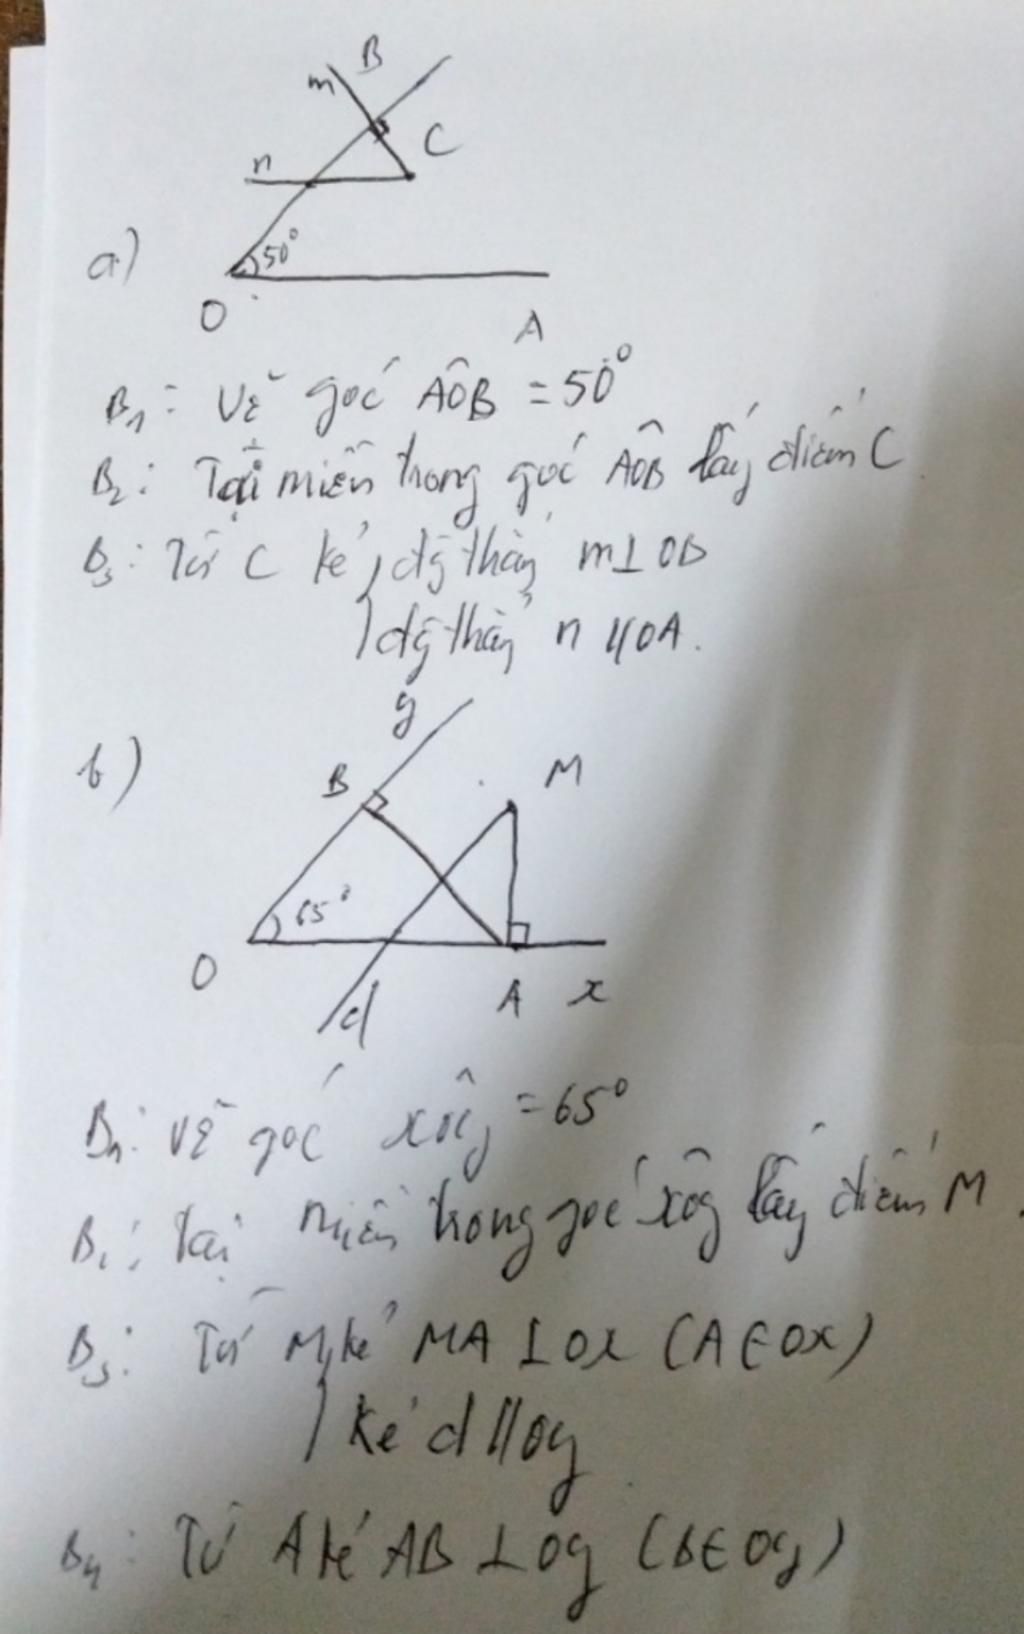 B
m
C
n
a)
50°
O
A
B₁: Vẽ góc AÔB = 50°
B₂: Tại miền trong góc AÔB lấy điểm C.
B₃: Từ C kẻ đg thẳng m ⊥ OB
đg thẳng n // OA.
y
b)
B
M
65°
O
d
A
x
B₁: Vẽ góc xÔy = 65°
B₂: Tại miền trong góc xÔy lấy điểm M.
B₃: Từ M kẻ MA ⊥ Ox (A ∈ Ox)
kẻ d // Oy
B₄: Từ A kẻ AB ⊥ Oy (B ∈ Oy)